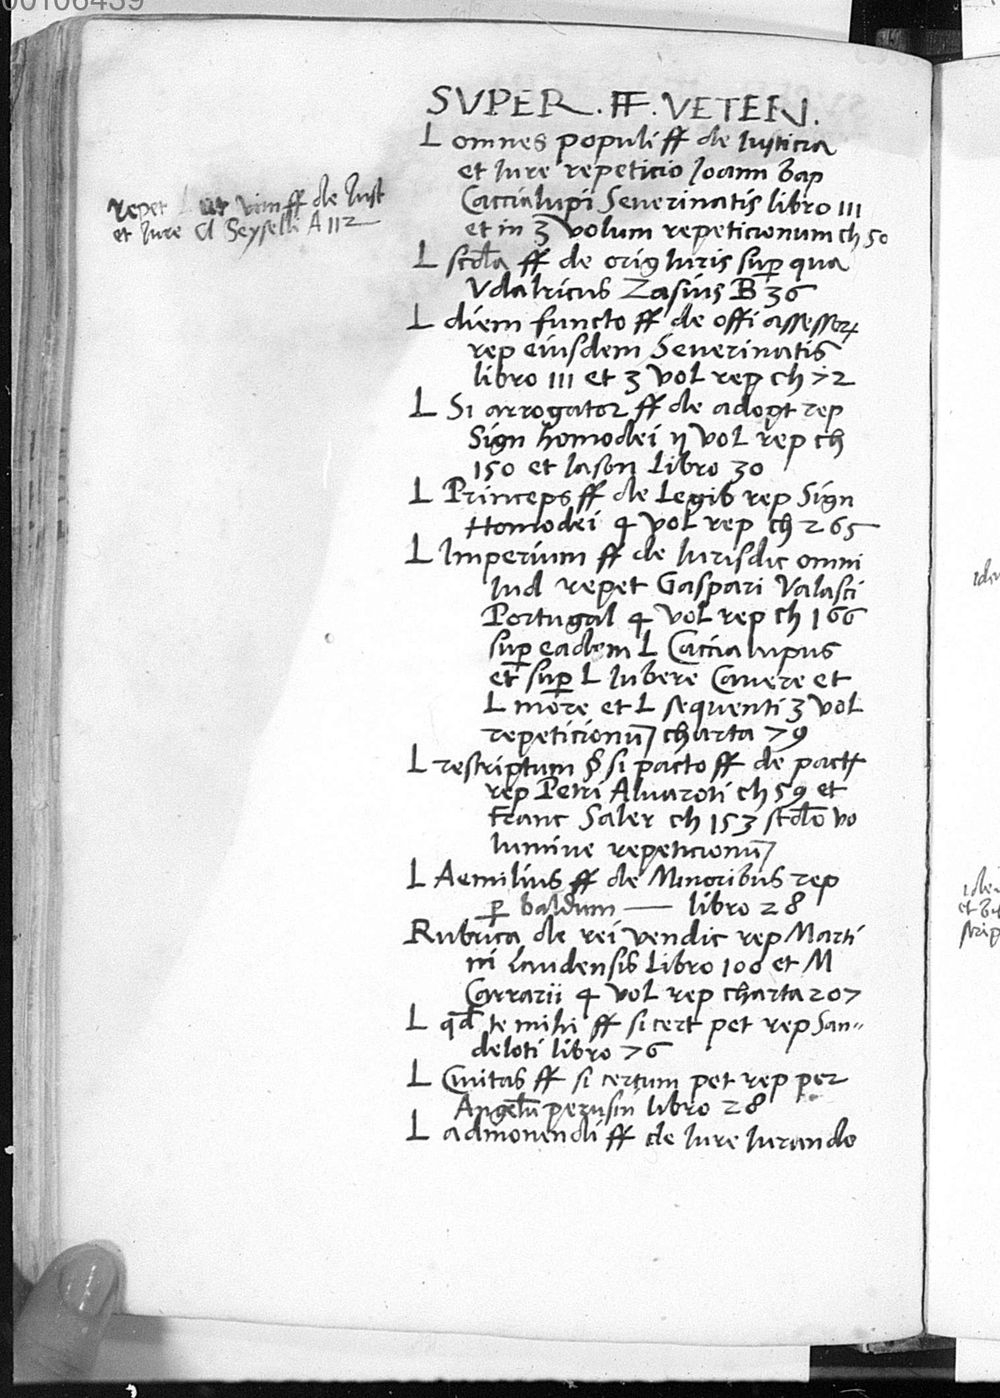 00106439
SVPER . FF . VETERI .
L omnes populi ff de Iusticia
et Iure repeticio Ioann bap
Caccialupi Seuerinatis libro III
et in 3 Volum repeticionum ch 50
repet L ut vim ff de Iust
et Iure Cl Seyselli A 112
L scd̄a ff de orig Iuris sup qua
Vdalricus Zasius B 36
L diem functo ff de offi assessorꝝ
rep eiusdem Seuerinatis
libro III et 3 Vol rep ch 72
L Si arrogator ff de adopt rep
Sign homodei ij Vol rep ch
150 et Iason Libro 30
L Princeps ff de Legib rep Sign
Homodei 4 Vol rep ch 265
L Imperium ff de Iurisdic omni
Iud repet Gaspari Valasci
Portugal 4 Vol rep ch 166
sup eadem L Caccialupus
et sup L Iubere Cauere et
L more et L sequenti 3 Vol
repeticionū charta 79
L rescriptum § si pacto ff de pact
rep Petri Aluaroti ch 59 et
Franc Saler ch 153 scd̄o vo
lumine repeticionū
L Aemilius ff de Minoribus rep
ꝑ baldum — libro 28
Rubrica de rei vendic rep Marti
ni Laudensis Libro 100 et M
Carrarii 4 Vol rep charta 207
L qd te mihi ff si cert pet rep San=
deloti libro 76
L Ciuitas ff si certum pet rep per
Angelū perusin libro 28
L admonendi ff de Iure Iurando